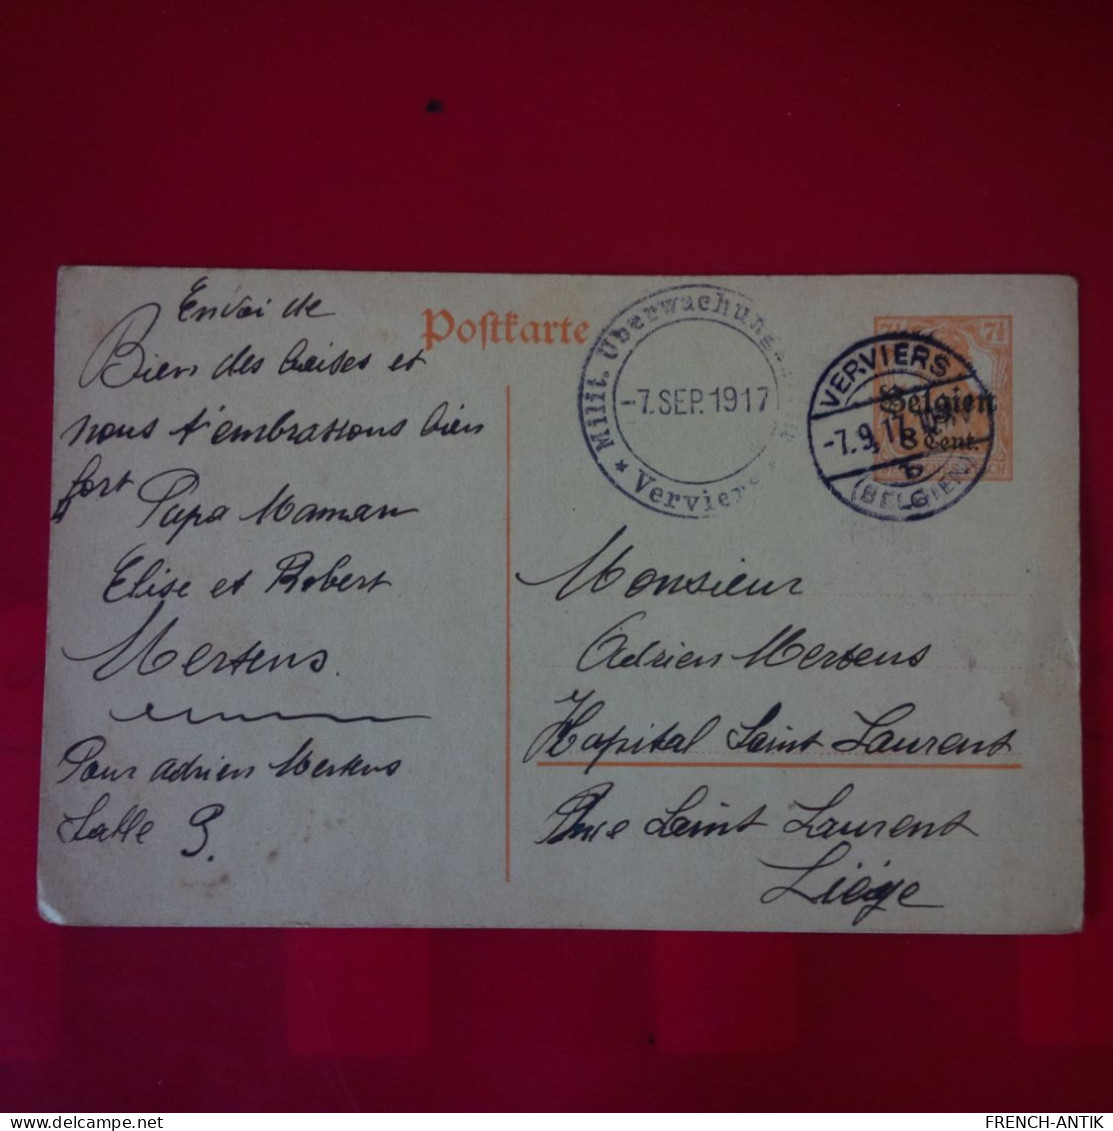 Envoi de
Bien des baises et
nous t'embrassons bien
fort
Papa Maman
Elise et Robert
Mertens.
Pour Adrien Mertens
Salle 9.
Postkarte
Milit. Überwachungs
-7. SEP. 1917
* Verviers
VERVIERS
-7.9.17.
b
(BELGIEN)
7½
Belgien
8 Cent.
Monsieur
Adrien Mertens
Hopital Saint Laurent
Rue Saint Laurent
Liége
FRENCH-ANTIK